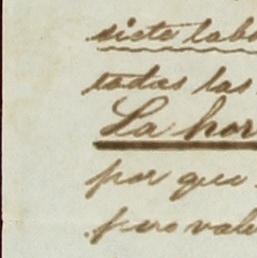 siete labo
todas las
La hor
por que
pero vale